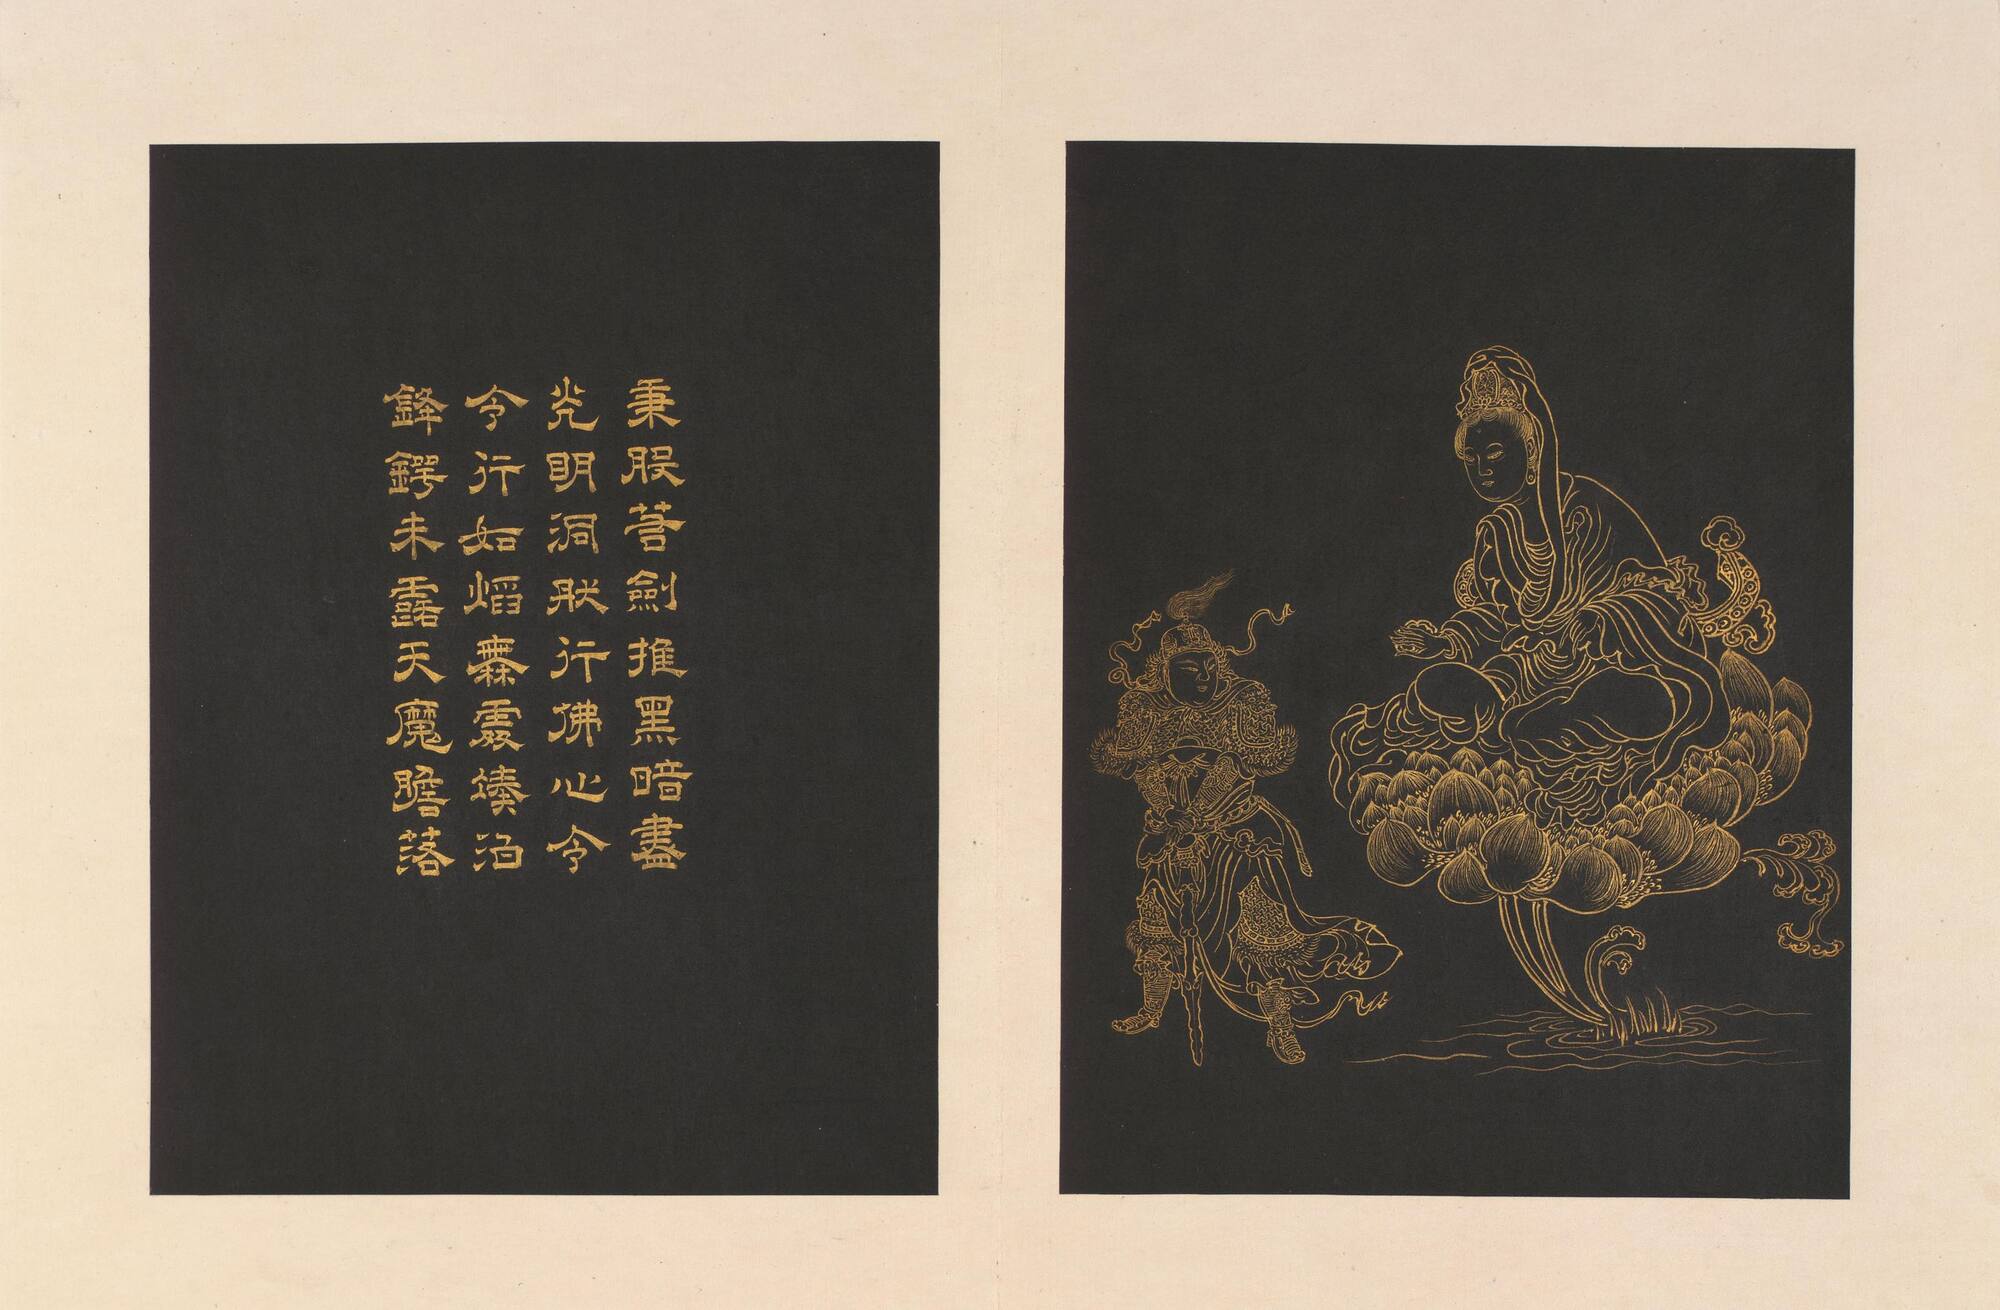 秉般若劍推黑暗盡
光明洞肰行佛心令
令行如熖無處湊泊
鋒鍔未露天魔膽落